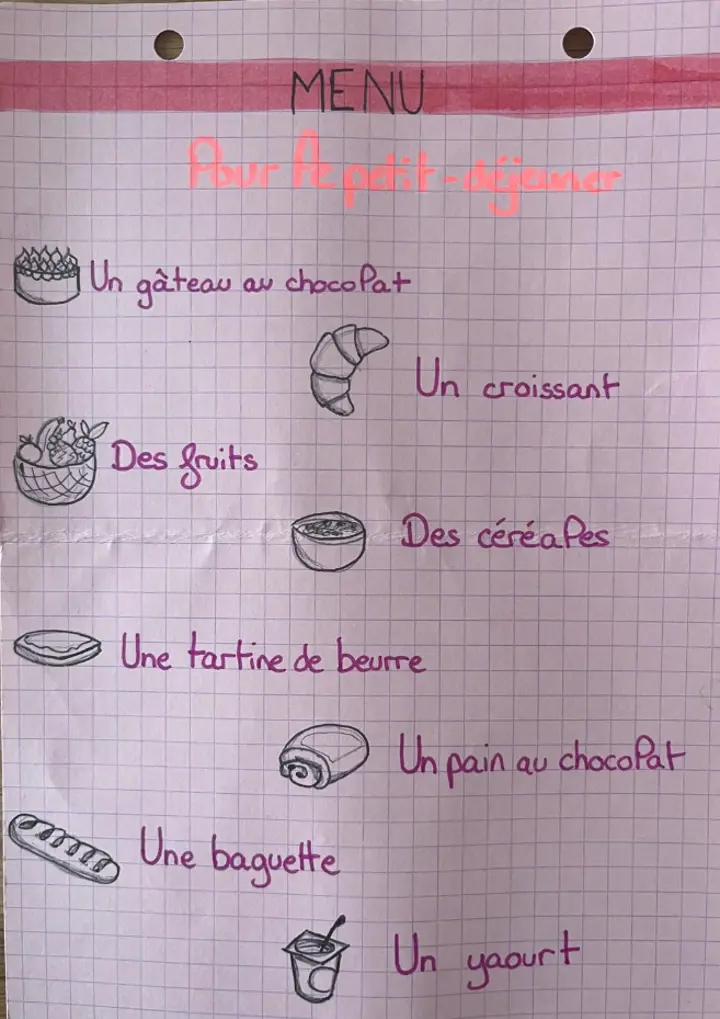 MENU
Pour le petit-déjeuner
Un gâteau au chocolat
Un croissant
Des fruits
Des céréales
Une tartine de beurre
Un pain au chocolat
Une baguette
Un yaourt